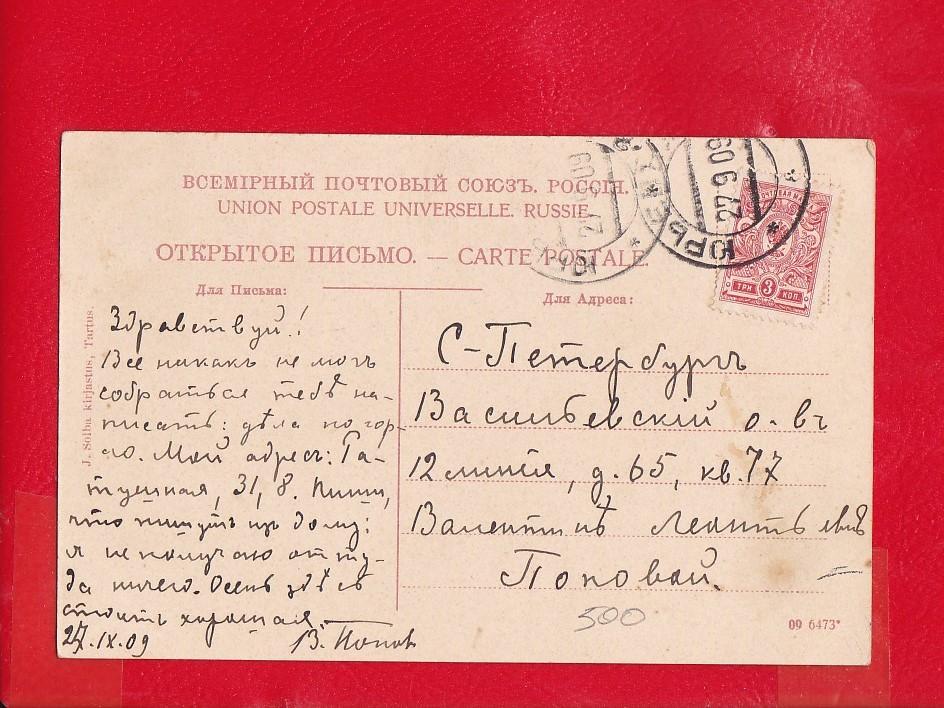 ВСЕМІРНЫЙ ПОЧТОВЫЙ СОЮЗЪ. РОССІЯ.
UNION POSTALE UNIVERSELLE. RUSSIE
ОТКРЫТОЕ ПИСЬМО. — CARTE POSTALE.
Для Письма:
Здравствуй!
Все никакъ не могъ
собраться тебѣ на-
писать: дѣла по гор-
ло. Мой адресъ:
31, 8. Пиши,
что пишутъ изъ дому;
я не получаю отту-
да ничего. Осень здѣсь
стоитъ хорошая.
27.IX.09 В. Попов
J. Sõlba kirjastus, Tartus.
Для Адреса:
С-Петербургъ
Васильевскій о-въ
12 линія, д. 65, кв. 77
Валентинѣ Леонтьевнѣ
Поповой.
500
09 6473*
ЮРЬЕВ
27 9 09
27 09
ПОЧТОВАЯ МАРКА
ТРИ 3 КОП